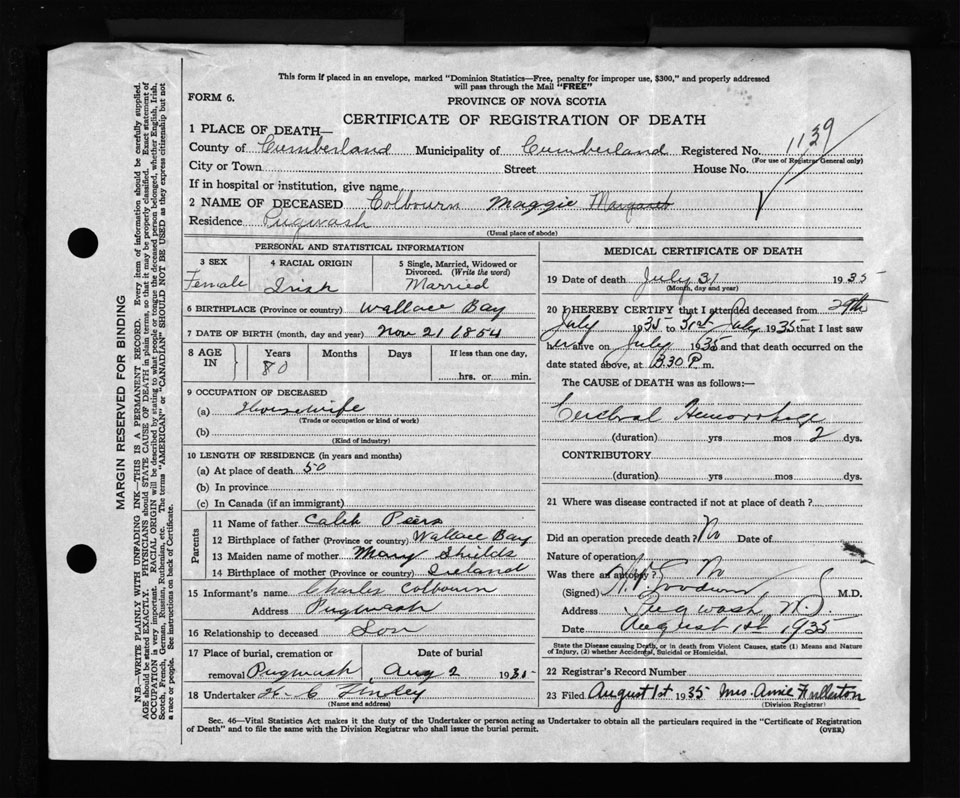 This form if placed in an envelope, marked "Dominion Statistics—Free, penalty for improper use, $300," and properly addressed
will pass through the Mail "FREE"
FORM 6.
PROVINCE OF NOVA SCOTIA
CERTIFICATE OF REGISTRATION OF DEATH
1 PLACE OF DEATH—
County of Cumberland Municipality of Cumberland Registered No. 1139
(For use of Registrar General only)
City or Town Street House No.
If in hospital or institution, give name
2 NAME OF DECEASED Colbourn Maggie Margaret
Residence Pugwash
(Usual place of abode)
PERSONAL AND STATISTICAL INFORMATION
3 SEX 4 RACIAL ORIGIN 5 Single, Married, Widowed or
Divorced. (Write the word)
Female Irish Married
6 BIRTHPLACE (Province or country) Wallace Bay
7 DATE OF BIRTH (month, day and year) Nov 21 1854
8 AGE IN Years Months Days If less than one day,
80 hrs. or min.
9 OCCUPATION OF DECEASED
(a) Housewife
(Trade or occupation or kind of work)
(b)
(Kind of industry)
10 LENGTH OF RESIDENCE (in years and months)
(a) At place of death 50
(b) In province
(c) In Canada (if an immigrant)
Parents
11 Name of father Caleb Peers
12 Birthplace of father (Province or country) Wallace Bay
13 Maiden name of mother Mary Shields
14 Birthplace of mother (Province or country) Ireland
15 Informant's name Charles Colbourn
Address Pugwash
16 Relationship to deceased Son
17 Place of burial, cremation or Date of burial
removal Pugwash Aug 2 1935
18 Undertaker
(Name and address)
MEDICAL CERTIFICATE OF DEATH
19 Date of death July 31 1935
(Month, day and year)
20 I HEREBY CERTIFY that I attended deceased from 29th
July 1935 to 31st July 1935 that I last saw
her alive on July 1935 and that death occurred on the
date stated above, at 8.30 P. m.
The CAUSE of DEATH was as follows:—
Cerebral Hemorrhage
(duration) yrs mos 2 dys.
CONTRIBUTORY
(duration) yrs mos dys.
21 Where was disease contracted if not at place of death?
Did an operation precede death? No Date of
Nature of operation
Was there an autopsy? No
(Signed) Goodwin M.D.
Address Pugwash, N.S.
Date August 1st 1935
State the Disease causing Death, or in death from Violent Causes, state (1) Means and Nature
of Injury, (2) whether Accidental, Suicidal or Homicidal.
22 Registrar's Record Number
23 Filed August 1st 1935 Mrs. Annie Fullerton
(Division Registrar)
Sec. 46—Vital Statistics Act makes it the duty of the Undertaker or person acting as Undertaker to obtain all the particulars required in the "Certificate of Registration
of Death" and to file the same with the Division Registrar who shall issue the burial permit. (OVER)
MARGIN RESERVED FOR BINDING
N.B.—WRITE PLAINLY WITH UNFADING INK—THIS IS A PERMANENT RECORD. Every item of information should be carefully supplied.
AGE should be stated EXACTLY. PHYSICIANS should STATE CAUSE OF DEATH in plain terms, so that it may be properly classified. Exact statement of
OCCUPATION is very important. RACIAL ORIGIN will be described by stating to what people or tongue the deceased person belonged, whether English, Irish,
Scotch, French, German, Russian, Ruthenian, etc. The terms "AMERICAN" or "CANADIAN" SHOULD NOT BE USED as they express citizenship but not
a race or people. See instructions on back of Certificate.